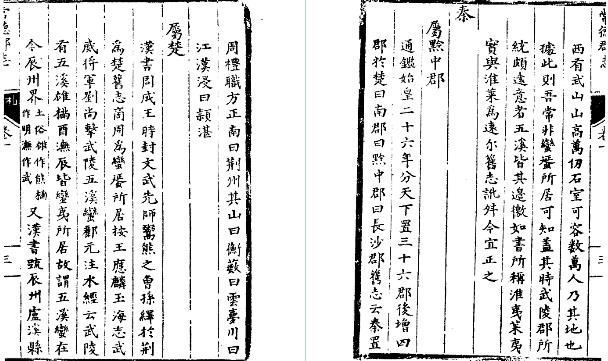 周禮職方正南曰荆州其山曰衡藪曰雲夢川曰
江漢浸曰頴湛
屬楚
漢書周成王時封文武先師鬻熊之曽孫繹於荆
為楚舊志商周為蠻蜑所居按王應麟玉海志武
威將軍劉尚擊武陵五溪蠻酈元注水經云武陵
有五溪雄樠酉潕辰皆蠻夷所居故謂五溪蠻在
今辰州界土俗雄作熊樠作明潕作武又漢書號辰州盧溪縣
卷一
三
西有武山山高萬仞石室可容數萬人乃其地也
據此則吾常非蠻蜑所居可知盖其時武陵郡所
統頗遠意者五溪皆其邊徼如書所稱淮夷萊夷
實與淮萊為遠尔舊志訛舛今宜正之
秦
屬黔中郡
通鑑始皇二十六年分天下置三十六郡後增四
郡於楚曰南郡曰黔中郡曰長沙郡舊志云秦置